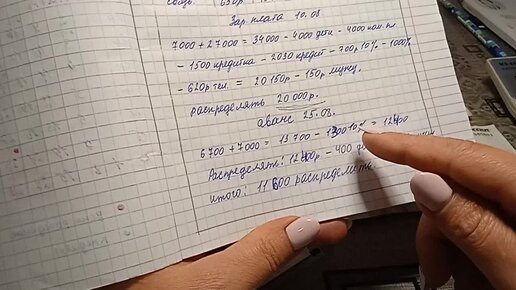 Зар. плата 10.08
7000 + 27000 = 34000 - 4000 дети - 4000 ком. пл.
- 1500 кредитка - 2030 кредит - 700р 10% - 1000%
- 620р тел. = 20150р - 150р мужу.
распределять 20 000р.
аванс 25.08.
6700 + 7000 = 13700 - 1300 10% = 12400
Распределять: 12400р - 400
итого: 11600 распределить